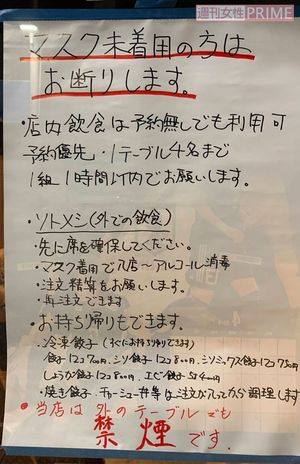 週刊女性PRIME
マスク未着用の方は
お断りします。
・店内飲食は予約無しでも利用可
予約優先・1テーブル4名まで
1組1時間以内でお願いします。
・ソトメシ(外での飲食)
・先に席を確保してください。
・マスク着用で入店〜アルコール消毒
・注文精算をお願いします。
・再注文できます
・お持ち帰りもできます。
・冷凍餃子(すぐにお持ち帰りできます)
餃子12コ700円、シソ餃子12コ800円、シソミックス餃子12コ750円
しょうが餃子12コ800円、エビ餃子5コ400円
・焼き餃子、チャーシュー丼等はご注文が入ってから調理します
・当店は外のテーブルでも
禁煙です。